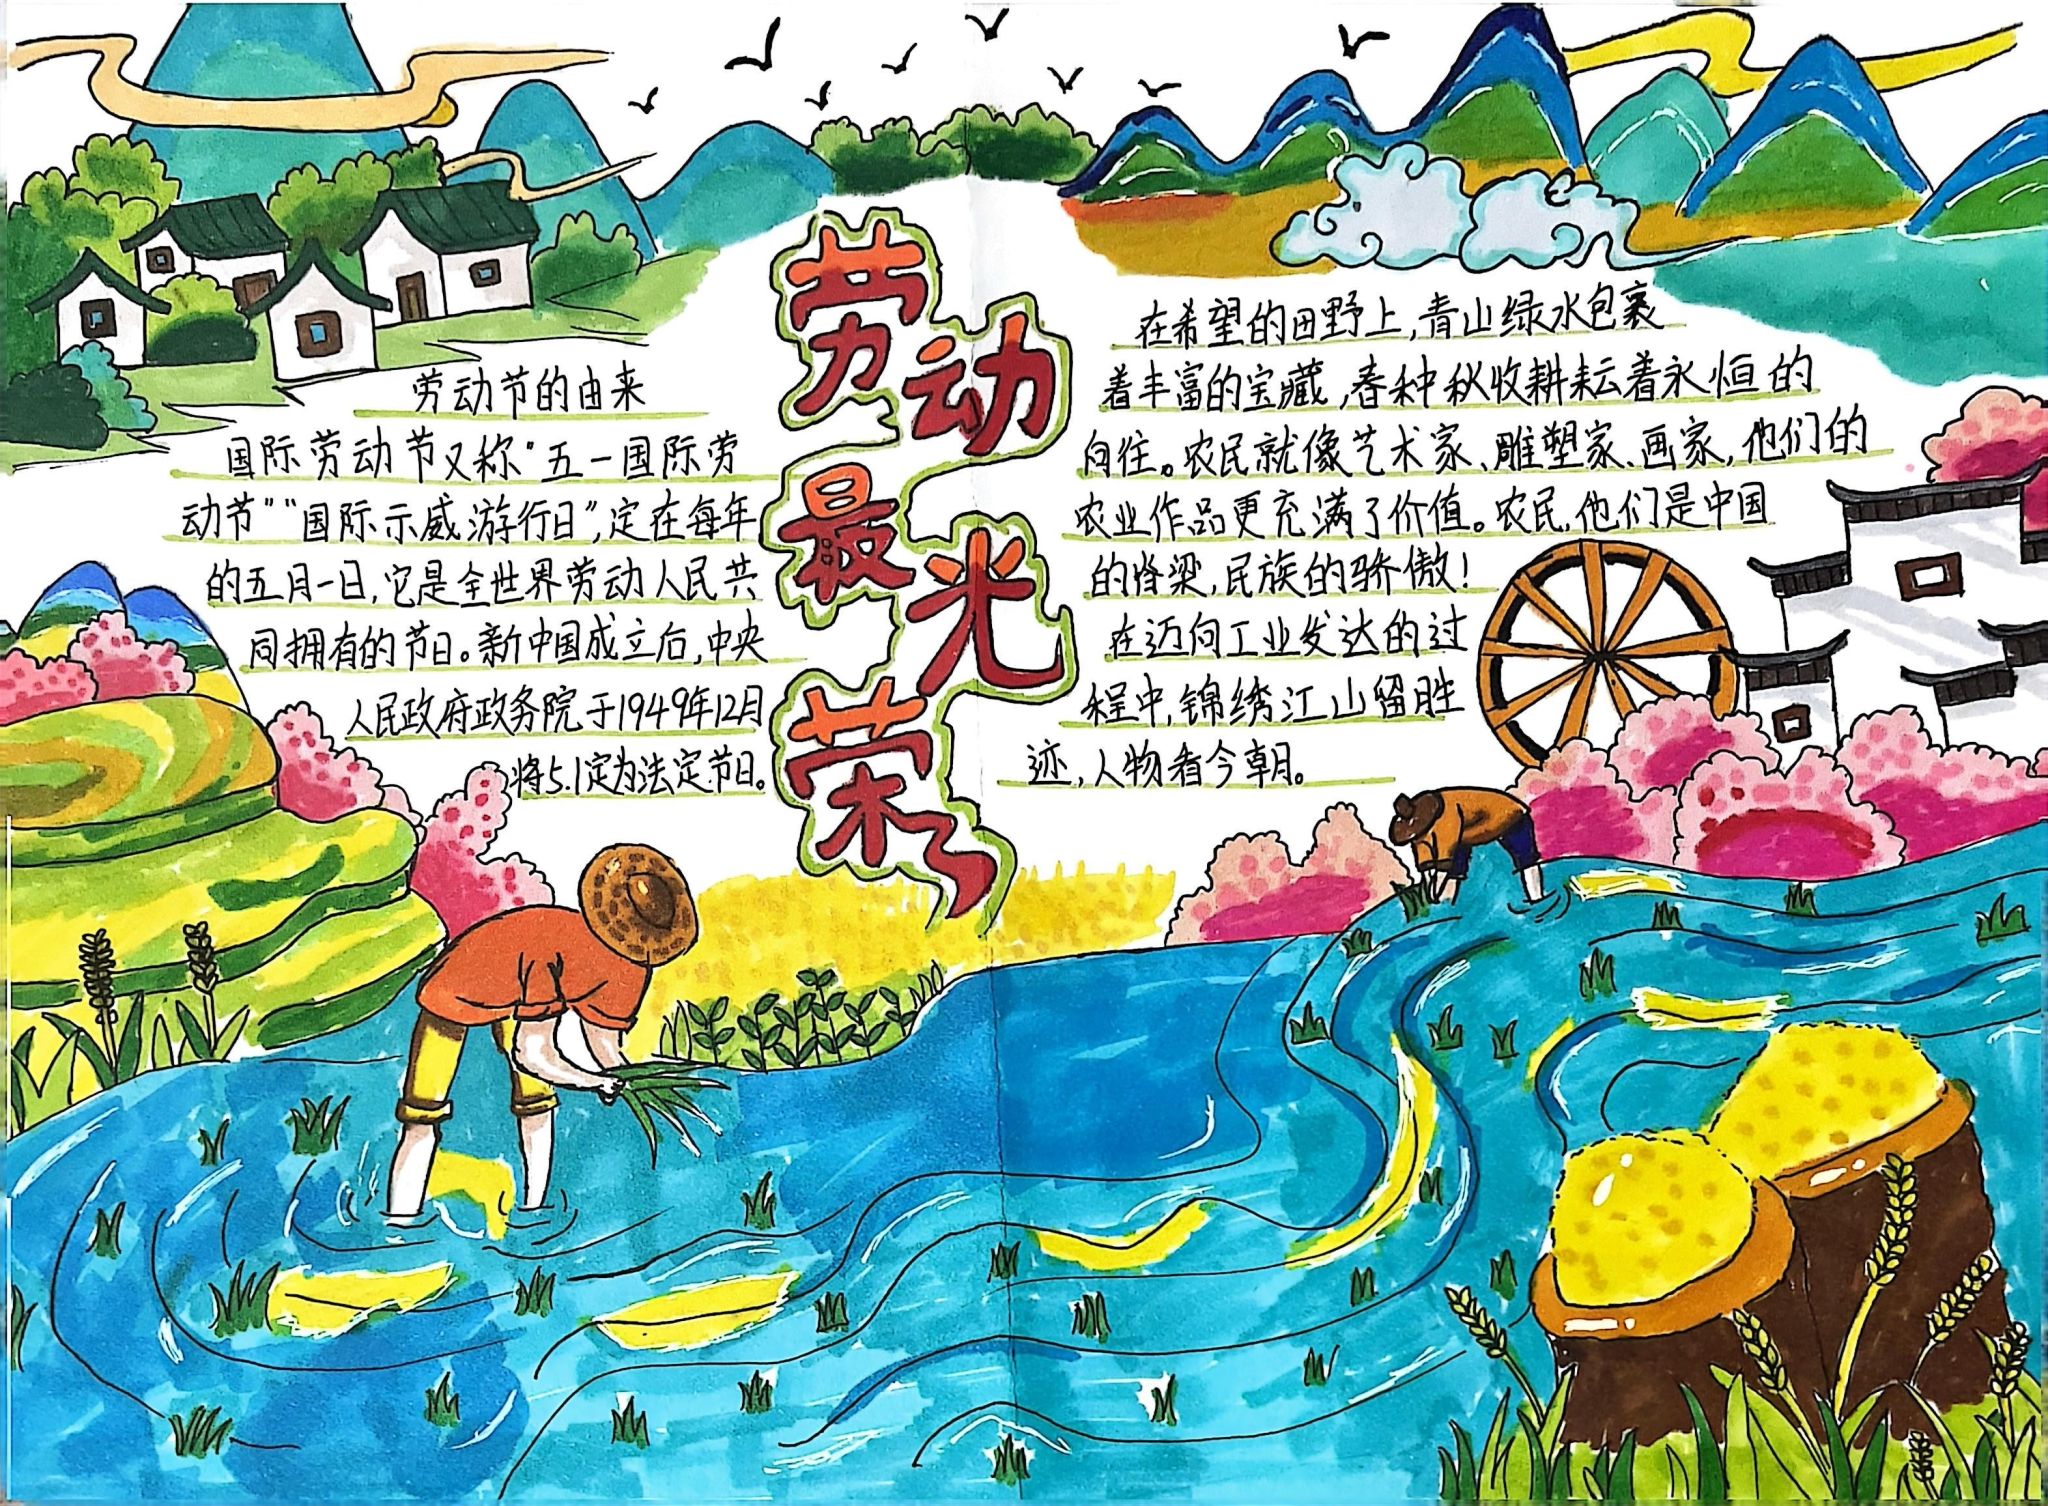 劳动最光荣
劳动节的由来
国际劳动节又称“五一国际劳
动节”“国际示威游行日”,定在每年
的五月一日,它是全世界劳动人民共
同拥有的节日。新中国成立后,中央
人民政府政务院于1949年12月
将5.1定为法定节日。
在希望的田野上,青山绿水包裹
着丰富的宝藏,春种秋收耕耘着永恒的
向往。农民就像艺术家、雕塑家、画家,他们的
农业作品更充满了价值。农民,他们是中国
的脊梁,民族的骄傲!
在迈向工业发达的过
程中,锦绣江山留胜
迹,人物看今朝。